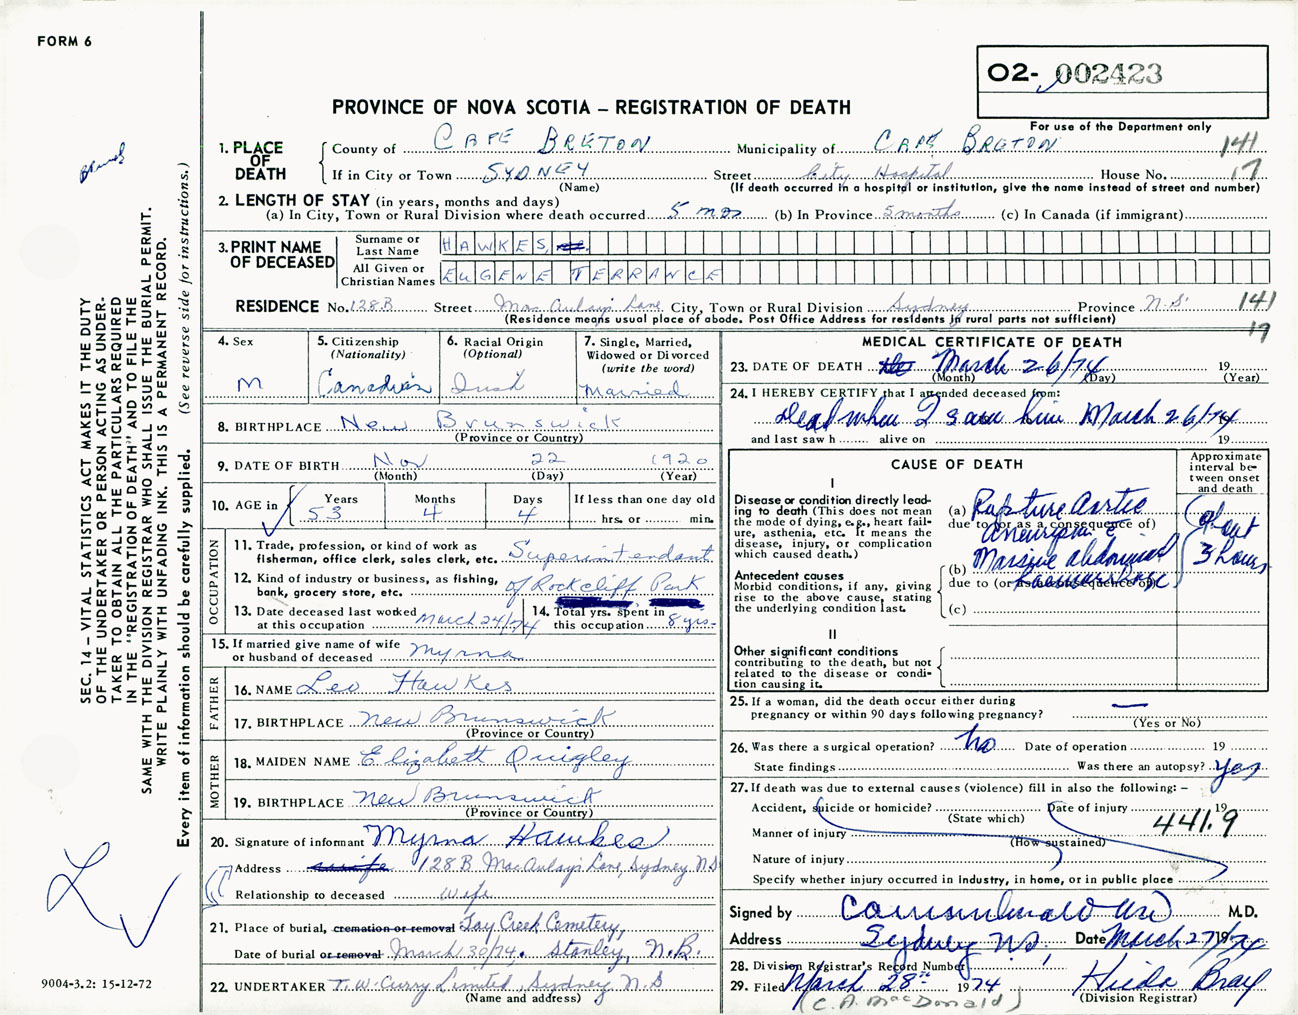 FORM 6
02- 002423
PROVINCE OF NOVA SCOTIA – REGISTRATION OF DEATH
For use of the Department only
1. PLACE OF DEATH
County of CAPE BRETON Municipality of CAPE BRETON 141
If in City or Town SYDNEY Street City Hospital House No. 17
(Name) (If death occurred in a hospital or institution, give the name instead of street and number)
2. LENGTH OF STAY (in years, months and days)
(a) In City, Town or Rural Division where death occurred 5 mos (b) In Province 5 months (c) In Canada (if immigrant)
3. PRINT NAME OF DECEASED
Surname or Last Name HAWKES,
All Given or Christian Names EUGENE TERRANCE
RESIDENCE No. 128B Street MacAulay's Lane City, Town or Rural Division Sydney Province N.S. 141
(Residence means usual place of abode. Post Office Address for residents in rural parts not sufficient) 19
4. Sex M
5. Citizenship (Nationality) Canadian
6. Racial Origin (Optional) Irish
7. Single, Married, Widowed or Divorced (write the word) Married
8. BIRTHPLACE New Brunswick
(Province or Country)
9. DATE OF BIRTH Nov 22 1920
(Month) (Day) (Year)
10. AGE in Years 53 Months 4 Days 4 If less than one day old hrs. or min.
OCCUPATION
11. Trade, profession, or kind of work as fisherman, office clerk, sales clerk, etc. Superintendant
12. Kind of industry or business, as fishing, bank, grocery store, etc. of Rockcliff Park
13. Date deceased last worked at this occupation March 24/74
14. Total yrs. spent in this occupation 8 yrs.
15. If married give name of wife or husband of deceased Myrna
FATHER
16. NAME Leo Hawkes
17. BIRTHPLACE New Brunswick
(Province or Country)
MOTHER
18. MAIDEN NAME Elizabeth Quigley
19. BIRTHPLACE New Brunswick
(Province or Country)
20. Signature of informant Myrna Hawkes
Address 128 B MacAulay's Lane, Sydney NS
Relationship to deceased Wife
21. Place of burial, cremation or removal Tay Creek Cemetery,
Date of burial or removal March 30/74. Stanley, N.B.
22. UNDERTAKER T. W. Curry Limited, Sydney N.S
(Name and address)
MEDICAL CERTIFICATE OF DEATH
23. DATE OF DEATH March 26/74 19
(Month) (Day) (Year)
24. I HEREBY CERTIFY that I attended deceased from:
Dead when I saw him March 26/74 19
and last saw h alive on 19
CAUSE OF DEATH
Approximate interval between onset and death
I
Disease or condition directly leading to death (This does not mean the mode of dying, e.g., heart failure, asthenia, etc. It means the disease, injury, or complication which caused death.)
(a) Rupture Aortic
due to (or as a consequence of)
Aneurysm c
(b) Massive abdominal
due to (or as a consequence of)
haemorrhage
(c)
about 3 hours
Antecedent causes
Morbid conditions, if any, giving rise to the above cause, stating the underlying condition last.
II
Other significant conditions
contributing to the death, but not related to the disease or condition causing it.
25. If a woman, did the death occur either during pregnancy or within 90 days following pregnancy? —
(Yes or No)
26. Was there a surgical operation? No Date of operation 19
State findings Was there an autopsy? yes
27. If death was due to external causes (violence) fill in also the following: –
Accident, suicide or homicide? Date of injury 19
(State which) 441.9
Manner of injury
(How sustained)
Nature of injury
Specify whether injury occurred in industry, in home, or in public place
Signed by M.D.
Address Sydney N.S, Date March 27/74 19
28. Division Registrar's Record Number
29. Filed March 28th 1974 Hilda Bray
(C. A. MacDonald) (Division Registrar)
SEC. 14 – VITAL STATISTICS ACT MAKES IT THE DUTY
OF THE UNDERTAKER OR PERSON ACTING AS UNDER-
TAKER TO OBTAIN ALL THE PARTICULARS REQUIRED
IN THE "REGISTRATION OF DEATH" AND TO FILE THE
SAME WITH THE DIVISION REGISTRAR WHO SHALL ISSUE THE BURIAL PERMIT.
WRITE PLAINLY WITH UNFADING INK. THIS IS A PERMANENT RECORD.
Every item of information should be carefully supplied. (See reverse side for instructions.)
9004-3.2: 15-12-72